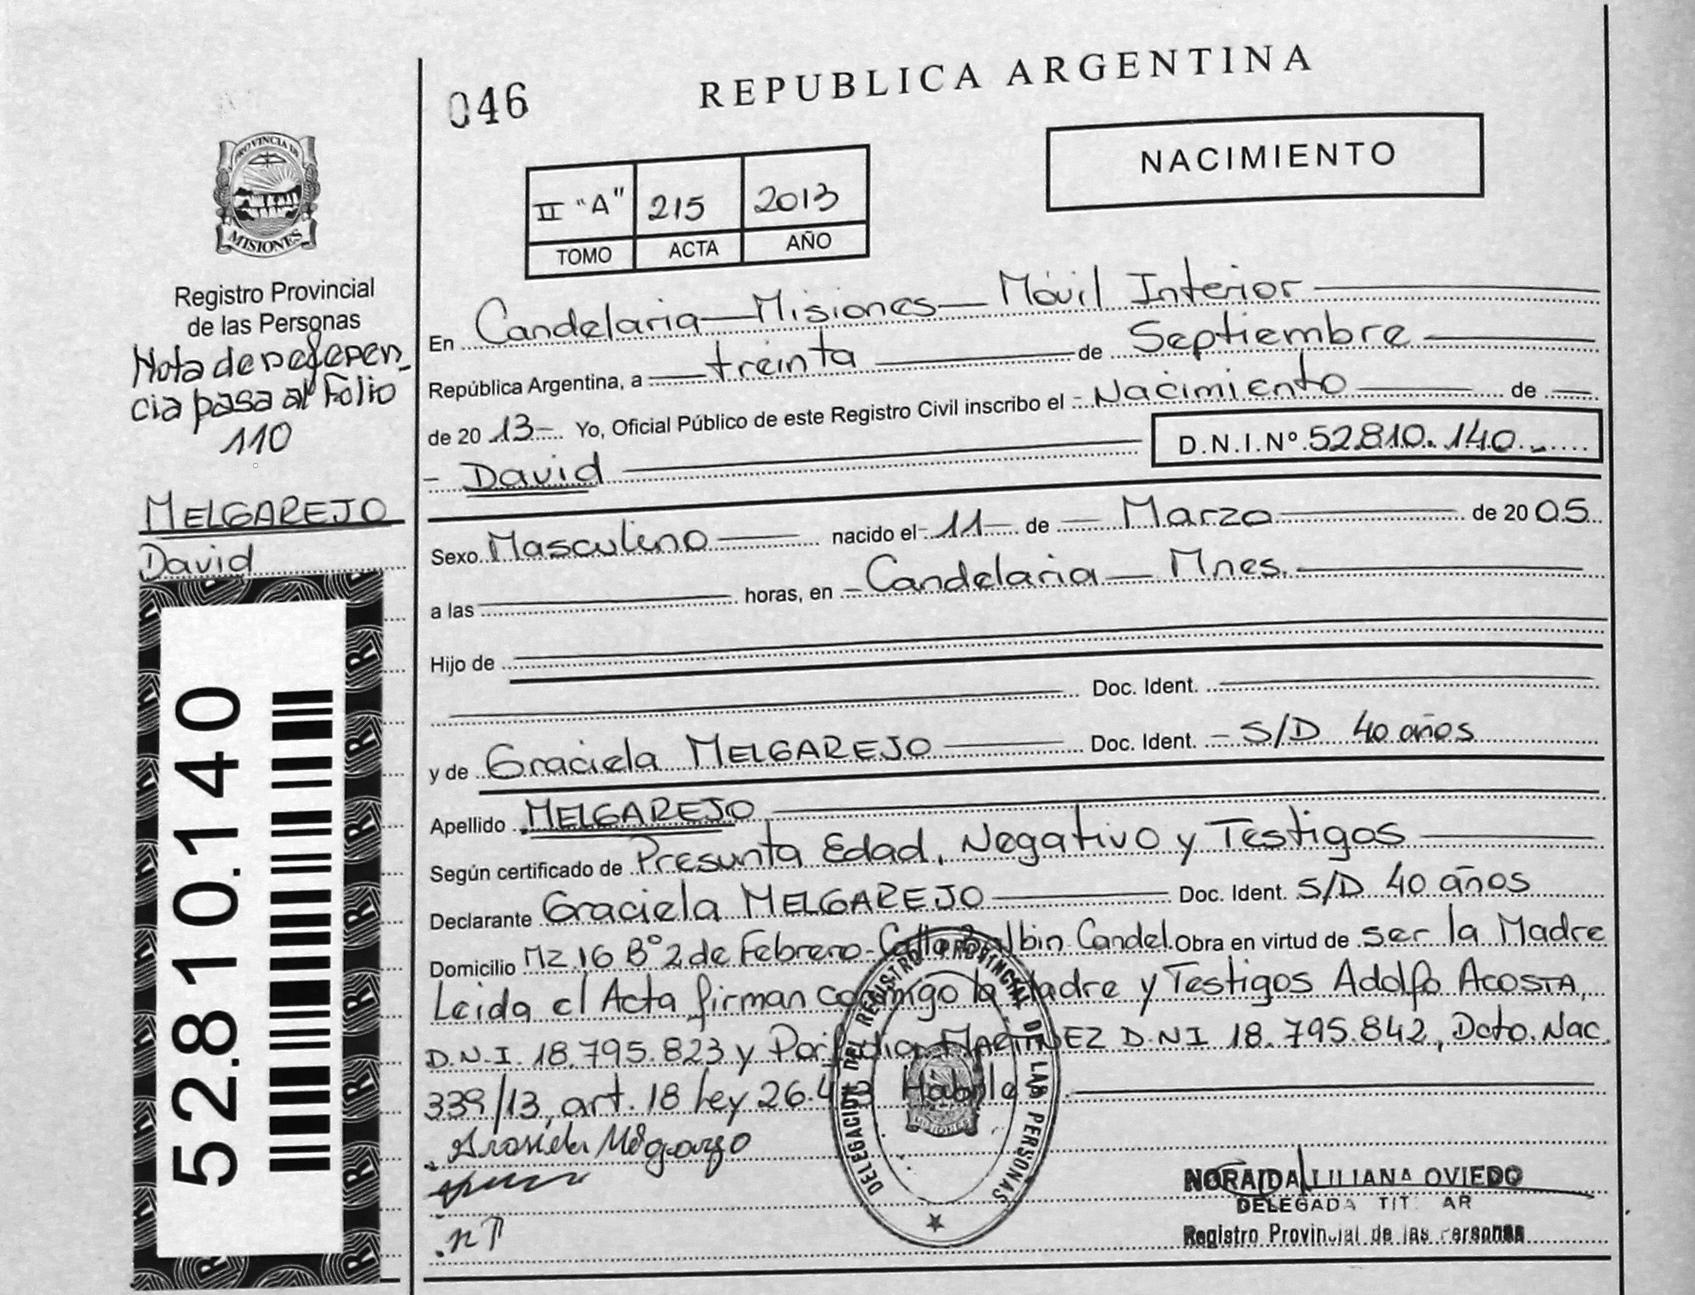 046
REPUBLICA ARGENTINA
NACIMIENTO
II "A" 215 2013
TOMO ACTA AÑO
PROVINCIA DE
MISIONES
Registro Provincial
de las Personas
Nota de referen_
cia pasa al Folio
110
MELGAREJO
David
52.810.140
En Candelaria — Misiones — Móvil Interior
República Argentina, a treinta de Septiembre
de 2013 Yo, Oficial Público de este Registro Civil inscribo el Nacimiento de
David
D.N.I.Nº 52.810.140
Sexo Masculino nacido el 11 de Marzo de 2005
a las horas, en Candelaria — Mnes.
Hijo de
Doc. Ident.
y de Graciela MELGAREJO Doc. Ident. S/D 40 años
Apellido MELGAREJO
Según certificado de Presunta Edad, Negativo y Testigos
Declarante Graciela MELGAREJO Doc. Ident. S/D 40 años
Domicilio Mz 16 Bº 2 de Febrero - Calle Balbin Candel. Obra en virtud de ser la Madre
Leida el Acta firman conmigo la Madre y Testigos Adolfo ACOSTA,
D.N.I. 18.795.823 y MARTINEZ D.NI 18.795.842, Dcto. Nac.
339/13, art. 18 Ley 26.413
DELEGACION DEL REGISTRO PROVINCIAL DE LAS PERSONAS
MISIONES
NORAIDA LILIANA OVIEDO
DELEGADA TIT AR
Registro Provincial de las Personas